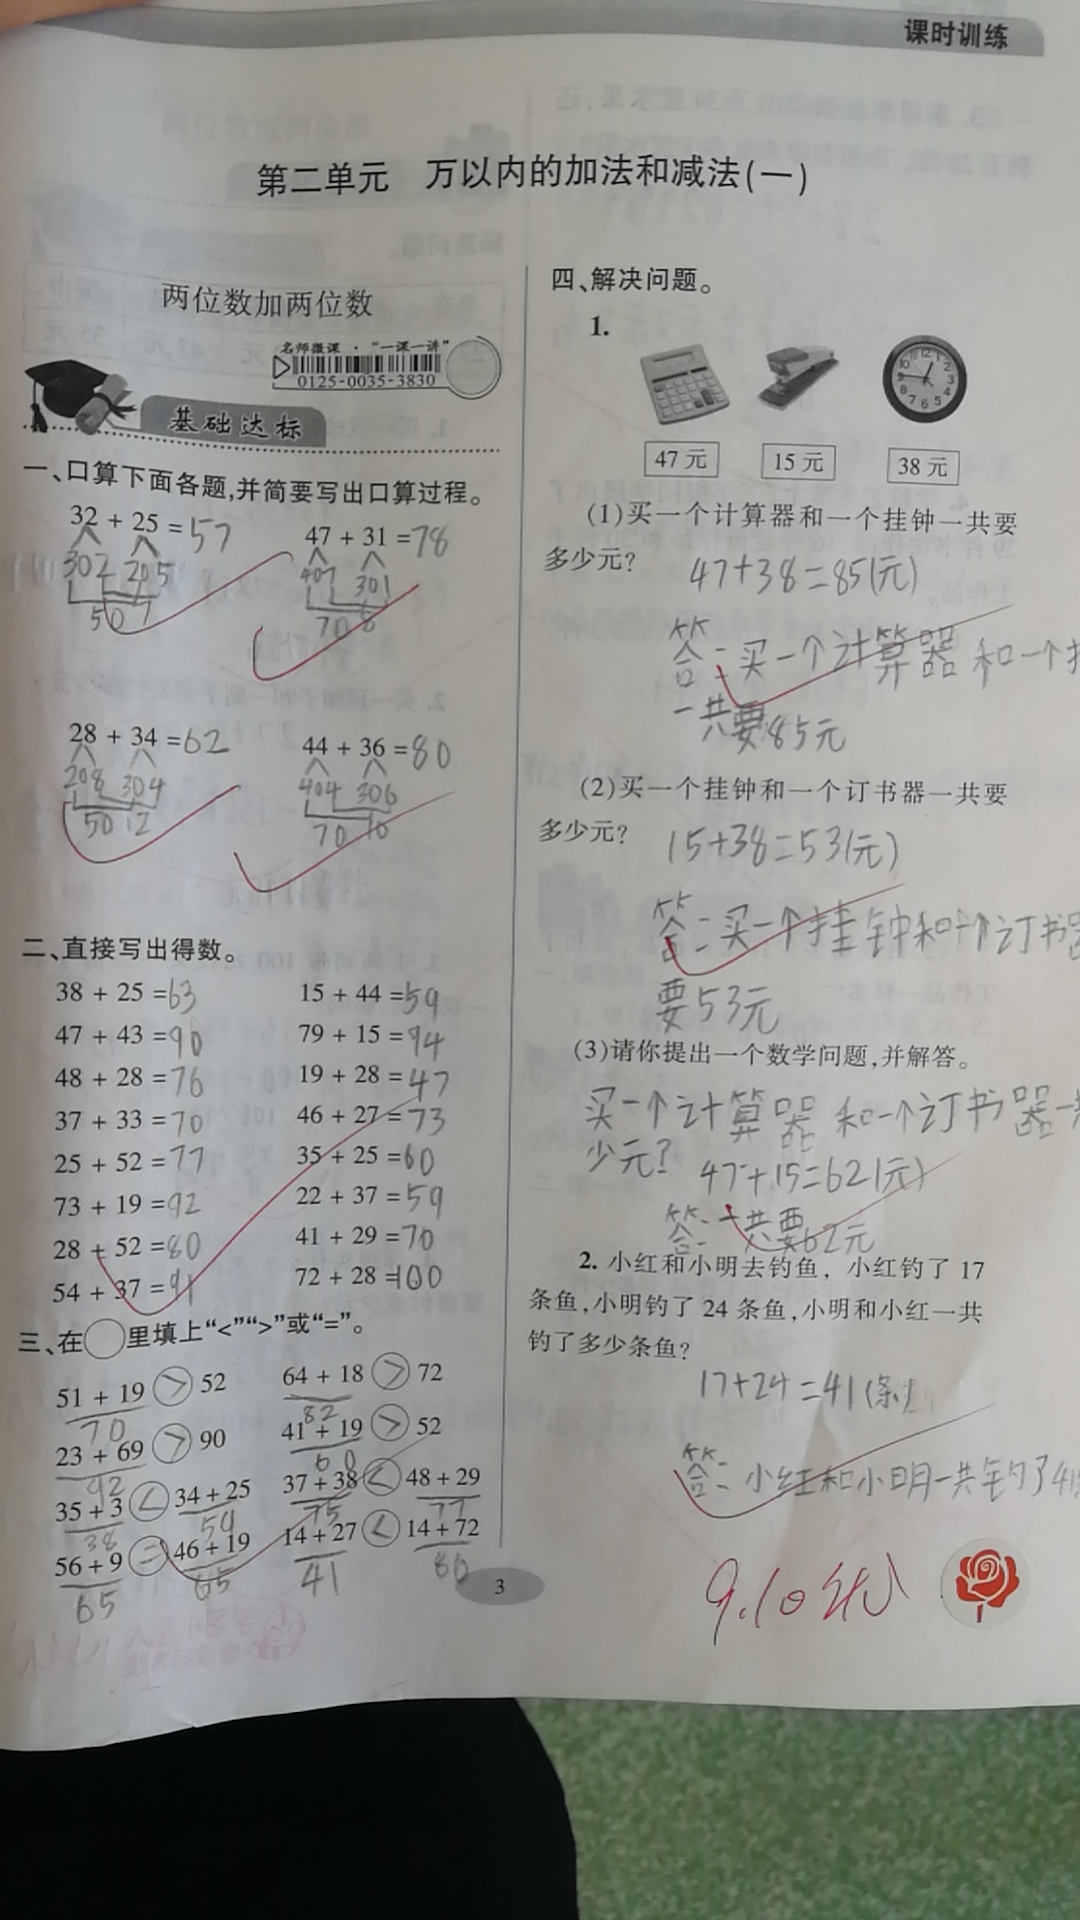 课时训练
第二单元 万以内的加法和减法(一)
两位数加两位数
名师微课·“一课一讲”
0125-0035-3830
基础达标
一、口算下面各题,并简要写出口算过程。
32 + 25 = 57 47 + 31 = 78
30 2 20 5 40 7 30 1
50 7 70 8
28 + 34 = 62 44 + 36 = 80
20 8 30 4 40 4 30 6
50 12 70 10
二、直接写出得数。
38 + 25 = 63 15 + 44 = 59
47 + 43 = 90 79 + 15 = 94
48 + 28 = 76 19 + 28 = 47
37 + 33 = 70 46 + 27 = 73
25 + 52 = 77 35 + 25 = 60
73 + 19 = 92 22 + 37 = 59
28 + 52 = 80 41 + 29 = 70
54 + 37 = 91 72 + 28 = 100
三、在○里填上“<”“>”或“=”。
51 + 19 > 52 64 + 18 > 72
70 82
23 + 69 > 90 41 + 19 > 52
92 60
35 + 3 < 34 + 25 37 + 38 < 48 + 29
38 59 75 77
56 + 9 = 46 + 19 14 + 27 < 14 + 72
65 65 41 86
3
四、解决问题。
1.
47 元 15 元 38 元
(1)买一个计算器和一个挂钟一共要
多少元?
47+38=85(元)
答:买一个计算器和一个
一共要85元
(2)买一个挂钟和一个订书器一共要
多少元?
15+38=53(元)
答:买一个挂钟和一个订书器
要53元
(3)请你提出一个数学问题,并解答。
买一个计算器和一个订书器一
少元?
47+15=62(元)
答:一共要62元
2. 小红和小明去钓鱼，小红钓了 17
条鱼,小明钓了 24 条鱼,小明和小红一共
钓了多少条鱼?
17+24=41(条)
答:小红和小明一共钓了41
9.10 优